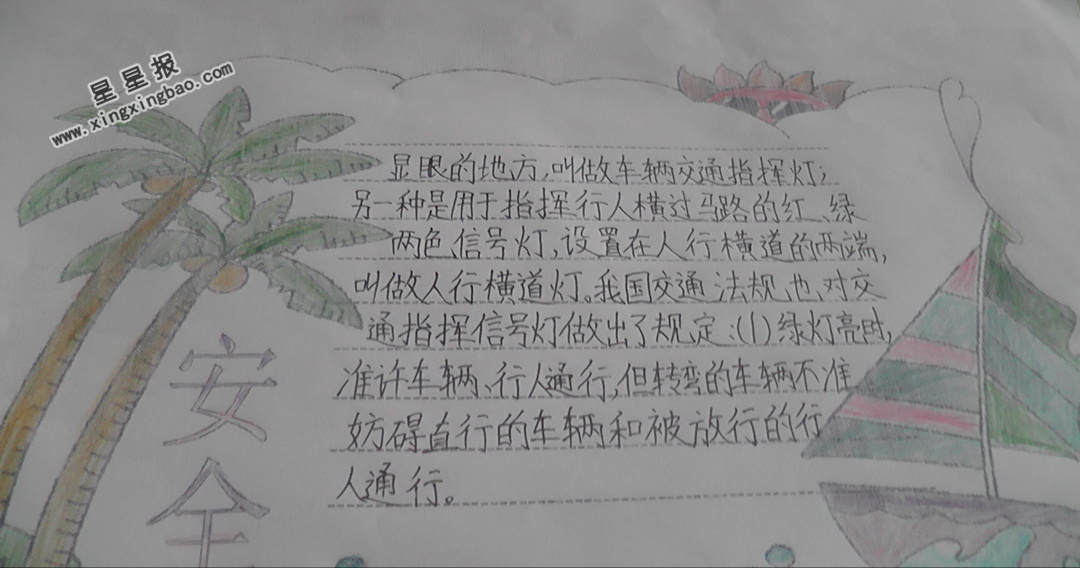 星星报
www.xingxingbao.com
显眼的地方,叫做车辆交通指挥灯;
另一种是用于指挥行人横过马路的红、绿
两色信号灯,设置在人行横道的两端,
叫做人行横道灯。我国交通法规也对交
通指挥信号灯做出了规定:(1)绿灯亮时,
准许车辆、行人通行,但转弯的车辆不准
妨碍直行的车辆和被放行的行
人通行。
安全